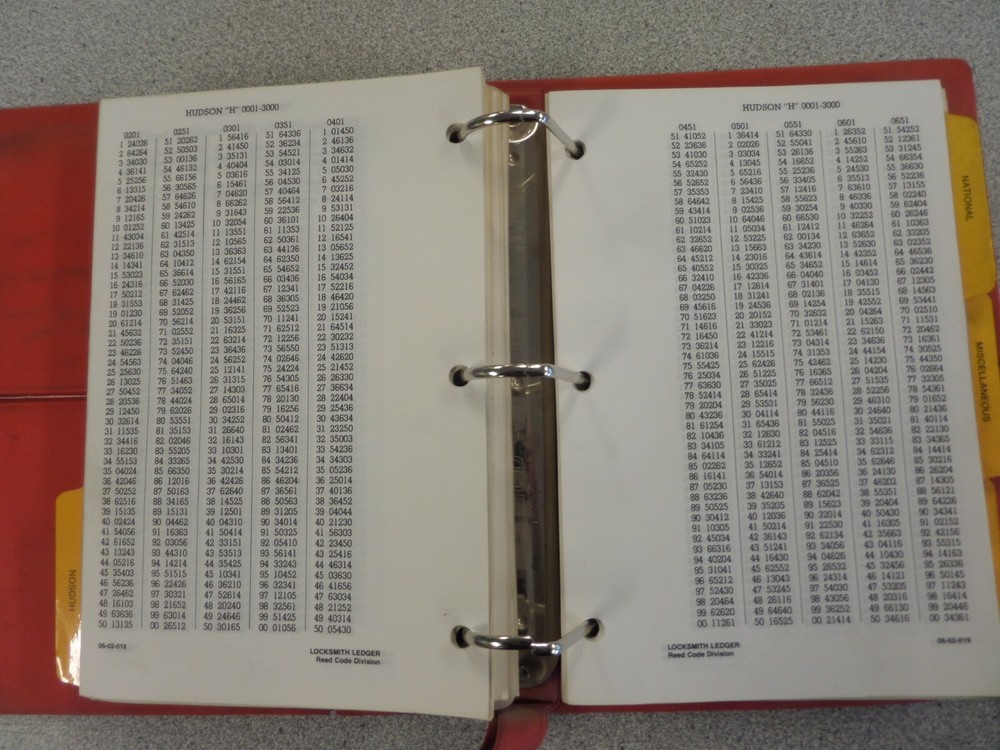 HUDSON "H" 0001-3000
0201 0251 0301 0351 0401
1 24026 51 20262 1 56416 51 64336 1 01450
2 64264 52 50503 2 41450 52 36234 2 46136
3 34030 53 00136 3 35131 53 54521 3 34632
4 36141 54 46132 4 40404 54 03014 4 01414
5 25256 55 66156 5 03616 55 34125 5 05030
6 13315 56 30565 6 15461 56 04530 6 45252
7 20426 57 64626 7 04620 57 40464 7 03216
8 34214 58 54610 8 66262 58 56412 8 24114
9 12165 59 24262 9 31643 59 22536 9 53131
10 01252 60 13425 10 32054 60 36101 10 26404
11 43034 61 42514 11 13551 61 11353 11 52125
12 22136 62 31513 12 10565 62 50361 12 16541
13 34610 63 04350 13 36363 63 44136 13 05652
14 14341 64 10412 14 62154 64 62350 14 13625
15 53023 65 36614 15 31551 65 54652 15 32452
16 24316 66 52030 16 56165 66 03436 16 54034
17 50212 67 62462 17 42116 67 12341 17 52216
18 31553 68 31425 18 24462 68 36305 18 46420
19 01230 69 52052 19 36256 69 52523 19 21056
20 61214 70 56214 20 53151 70 11241 20 15241
21 45632 71 02552 21 16325 71 62512 21 64514
22 50236 72 35151 22 63214 72 12256 22 30232
23 46226 73 52450 23 36436 73 56550 23 51313
24 54563 74 04046 24 56252 74 02646 24 42620
25 25630 75 64240 25 12141 75 24224 25 21452
26 13025 76 51463 26 31316 76 54305 26 26330
27 50452 77 34052 27 14303 77 65416 27 36634
28 20536 78 44024 28 65014 78 20130 28 22404
29 12450 79 62026 29 02316 79 16256 29 25436
30 32614 80 53551 30 34252 80 50412 30 43634
31 11535 81 35153 31 26640 81 02416 31 23250
32 34416 82 02046 32 16143 82 56341 32 35003
33 16230 83 55205 33 10301 83 13401 33 54236
34 55153 84 33265 34 42530 84 34236 34 34303
35 04024 85 66350 35 30214 85 54212 35 05236
36 42046 86 12016 36 42426 86 46204 36 25014
37 50252 87 50163 37 62640 87 36561 37 40136
38 62516 88 34165 38 14525 88 50563 38 36452
39 15135 89 15131 39 12501 89 31205 39 04044
40 02424 90 04462 40 04310 90 34014 40 21230
41 54056 91 16363 41 50414 91 50325 41 56303
42 61652 92 03056 42 33151 92 05410 42 23450
43 13243 93 44310 43 53513 93 56141 43 25416
44 05216 94 14214 44 35425 94 33243 44 46314
45 35403 95 51515 45 10341 95 10452 45 03630
46 56236 96 22426 46 36210 96 32341 46 41656
47 26462 97 30321 47 52614 97 12105 47 63034
48 16103 98 21652 48 20240 98 32561 48 21252
49 63636 99 63014 49 24646 99 51425 49 40314
50 13135 00 26512 50 30165 00 01056 50 05430
06-02-018
LOCKSMITH LEDGER
Reed Code Division
HUDSON
HUDSON "H" 0001-3000
0451 0501 0551 0601 0651
51 41052 1 36414 51 64330 1 26352 51 54252
52 23636 2 02026 52 55041 2 45610 52 12361
53 41030 3 03034 53 26136 3 55263 53 31245
54 65252 4 13045 54 16652 4 14252 54 66354
55 32430 5 65216 55 25236 5 24530 55 36630
56 52652 6 56436 56 33405 6 35513 56 52236
57 35353 7 23410 57 12416 7 63610 57 13155
58 64642 8 15425 58 55623 8 46336 58 02240
59 43414 9 02536 59 30254 9 40330 59 62404
60 51023 10 64046 60 66530 10 32252 60 26246
61 10214 11 05034 61 12412 11 46264 61 10363
62 32652 12 53225 62 00134 12 63652 62 33205
63 46620 13 15663 63 34230 13 52630 63 02352
64 45212 14 23016 64 43614 14 42352 64 46536
65 40552 15 30325 65 34652 15 14614 65 36230
66 32410 16 42336 66 04040 16 03452 66 02442
67 04226 17 12614 67 31401 17 04130 67 12305
68 03250 18 31241 68 02136 18 35515 68 14563
69 45616 19 24536 69 14254 19 42552 69 53441
70 51623 20 20152 70 32632 20 04264 70 02510
71 14616 21 33023 71 01214 21 15263 71 11531
72 16450 22 41214 72 53461 22 62150 72 20462
73 36214 23 12216 73 02334 23 34636 73 16361
74 61036 24 15515 74 31353 24 44154 74 30525
75 55425 25 62426 75 62442 25 14230 75 44350
76 25034 26 51225 76 16365 26 04204 76 02664
77 63630 27 35025 77 66512 27 51535 77 32305
78 52414 28 65414 78 32436 28 52256 78 54361
79 20204 29 53531 79 56230 29 46310 79 01652
80 43236 30 04114 80 44116 30 24640 80 21436
81 61254 31 65436 81 55025 31 35021 81 40114
82 10436 32 12630 82 04516 32 54636 82 22130
83 34105 33 61212 83 12525 33 33115 83 34365
84 64114 34 33241 84 25414 34 62312 84 14414
85 02262 35 12652 85 04510 35 62646 85 30216
86 16141 36 54014 86 20356 36 24130 86 26204
87 05230 37 13153 87 36525 37 46202 87 14305
88 63236 38 42640 88 62042 38 55351 88 56121
89 50525 39 53416 89 15623 39 20404 89 64226
90 30412 40 12036 90 32014 40 50430 90 34341
91 10305 41 50214 91 22530 41 16305 91 02152
92 45034 42 36143 92 62134 42 35663 92 42156
93 66316 43 51241 93 34056 43 04116 93 55315
94 40204 44 16430 94 04634 44 10430 94 14163
95 31041 45 62552 95 26532 45 32456 95 26336
96 65212 46 13043 96 24314 46 14121 96 50145
97 52430 47 53245 97 54030 47 53205 97 11243
98 20464 48 26116 98 43056 48 20316 98 16414
99 62620 49 64640 99 36252 49 66130 99 20446
00 11261 50 16525 00 21414 50 34616 00 34361
LOCKSMITH LEDGER
Reed Code Division
06-02-019
NATIONAL
MISCELLANEOUS